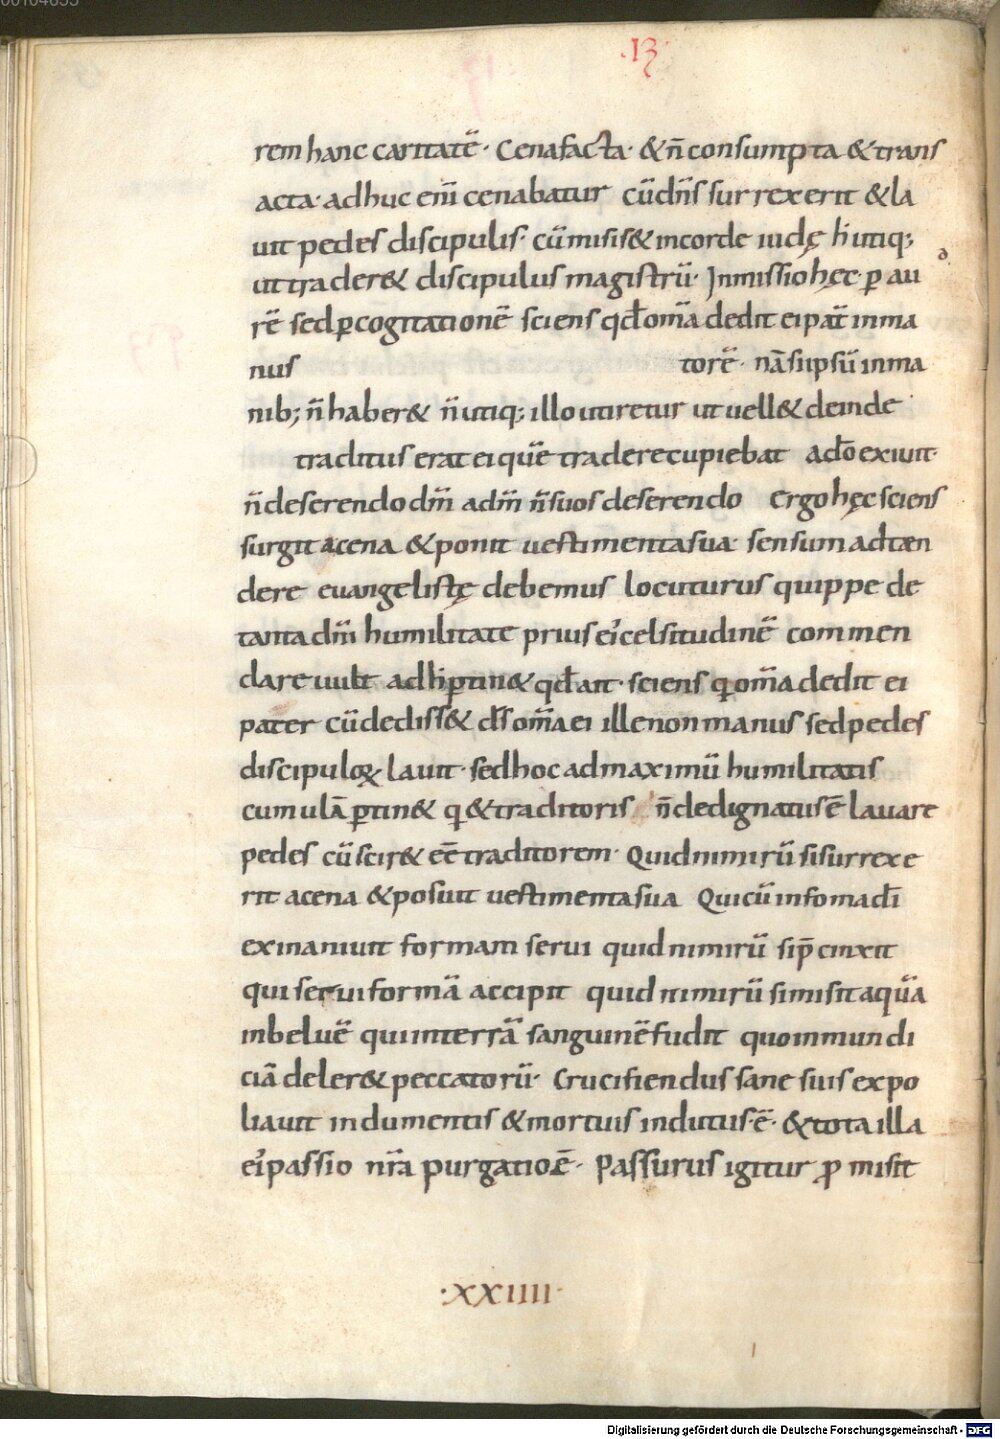 00104633
·13·
rem hanc caritatē· Cena facta· & n̄ consumpta & trans
acta· adhuc eni̅ cenabatur cū dn̄s surrexerit & la
uit pedes discipulis· cū misiss& in corde iudę h̄ utiq;
ut trader& discipulus magistrū· Inmissio hęc· ꝑ au
rē sed ꝑ cogitationē sciens qd̄ om̄a dedit ei pat̄ in ma
nus torē· nā si ipsū in ma
nib; n̄ haber& n̄ utiq; illo utiretur ut uell& deinde
traditus erat ei quē tradere cupiebat ad do̅ exiuit·
n̄ deserendo dm̄ ad m̄ n̄ suos deserendo Ergo hęc sciens
surgit a cena & ponit uestimenta sua· sensum adtæn
dere euangelistę debemus locuturus quippe de
tanta dm̄ humilitate prius ei' celsitudinē commen
dare uult ad h̄ ꝑtin& qd̄ ait· sciens q om̄a dedit ei
pater cū dediss& ds̄ om̄a ei ille non manus sed pedes
discipuloꝝ lauit· sed hoc ad maximū humilitatis
cumulā ꝑtin& q & traditoris n̄ dedignatus ē lauare
pedes cū scir& eē traditorem· Quid nimirū si surrexe
rit a cena & posuit uestimenta sua Qui cū in foma dī
exinaniuit formam serui quid nimirū si p̄cinxit
qui serui formā accipit quid nimirū si misit aquā
in beluē qui in terrā sanguinē fudit quo inmundi
ciā deler& peccatorū· Crucifiendus sane suis expo
liauit indumentis & mortuis indutus·ē· & tota illa
ei' passio nr̄a purgatio ē· Passurus igitur ꝓmisit
·XXIIII·
Digitalisierung gefördert durch die Deutsche Forschungsgemeinschaft - DFG